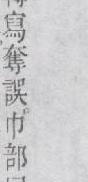 寫奪誤巾部